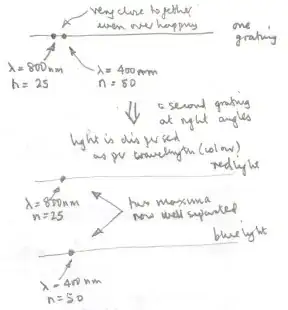 very close together
even overlapping
one
grating
λ = 800nm
n = 25
λ = 400nm
n = 50
= second grating
at right angles
light is dispersed
as per wavelength (colour)
red light
λ = 800nm
n = 25
two maxima
now well separated
blue light
λ = 400nm
n = 50